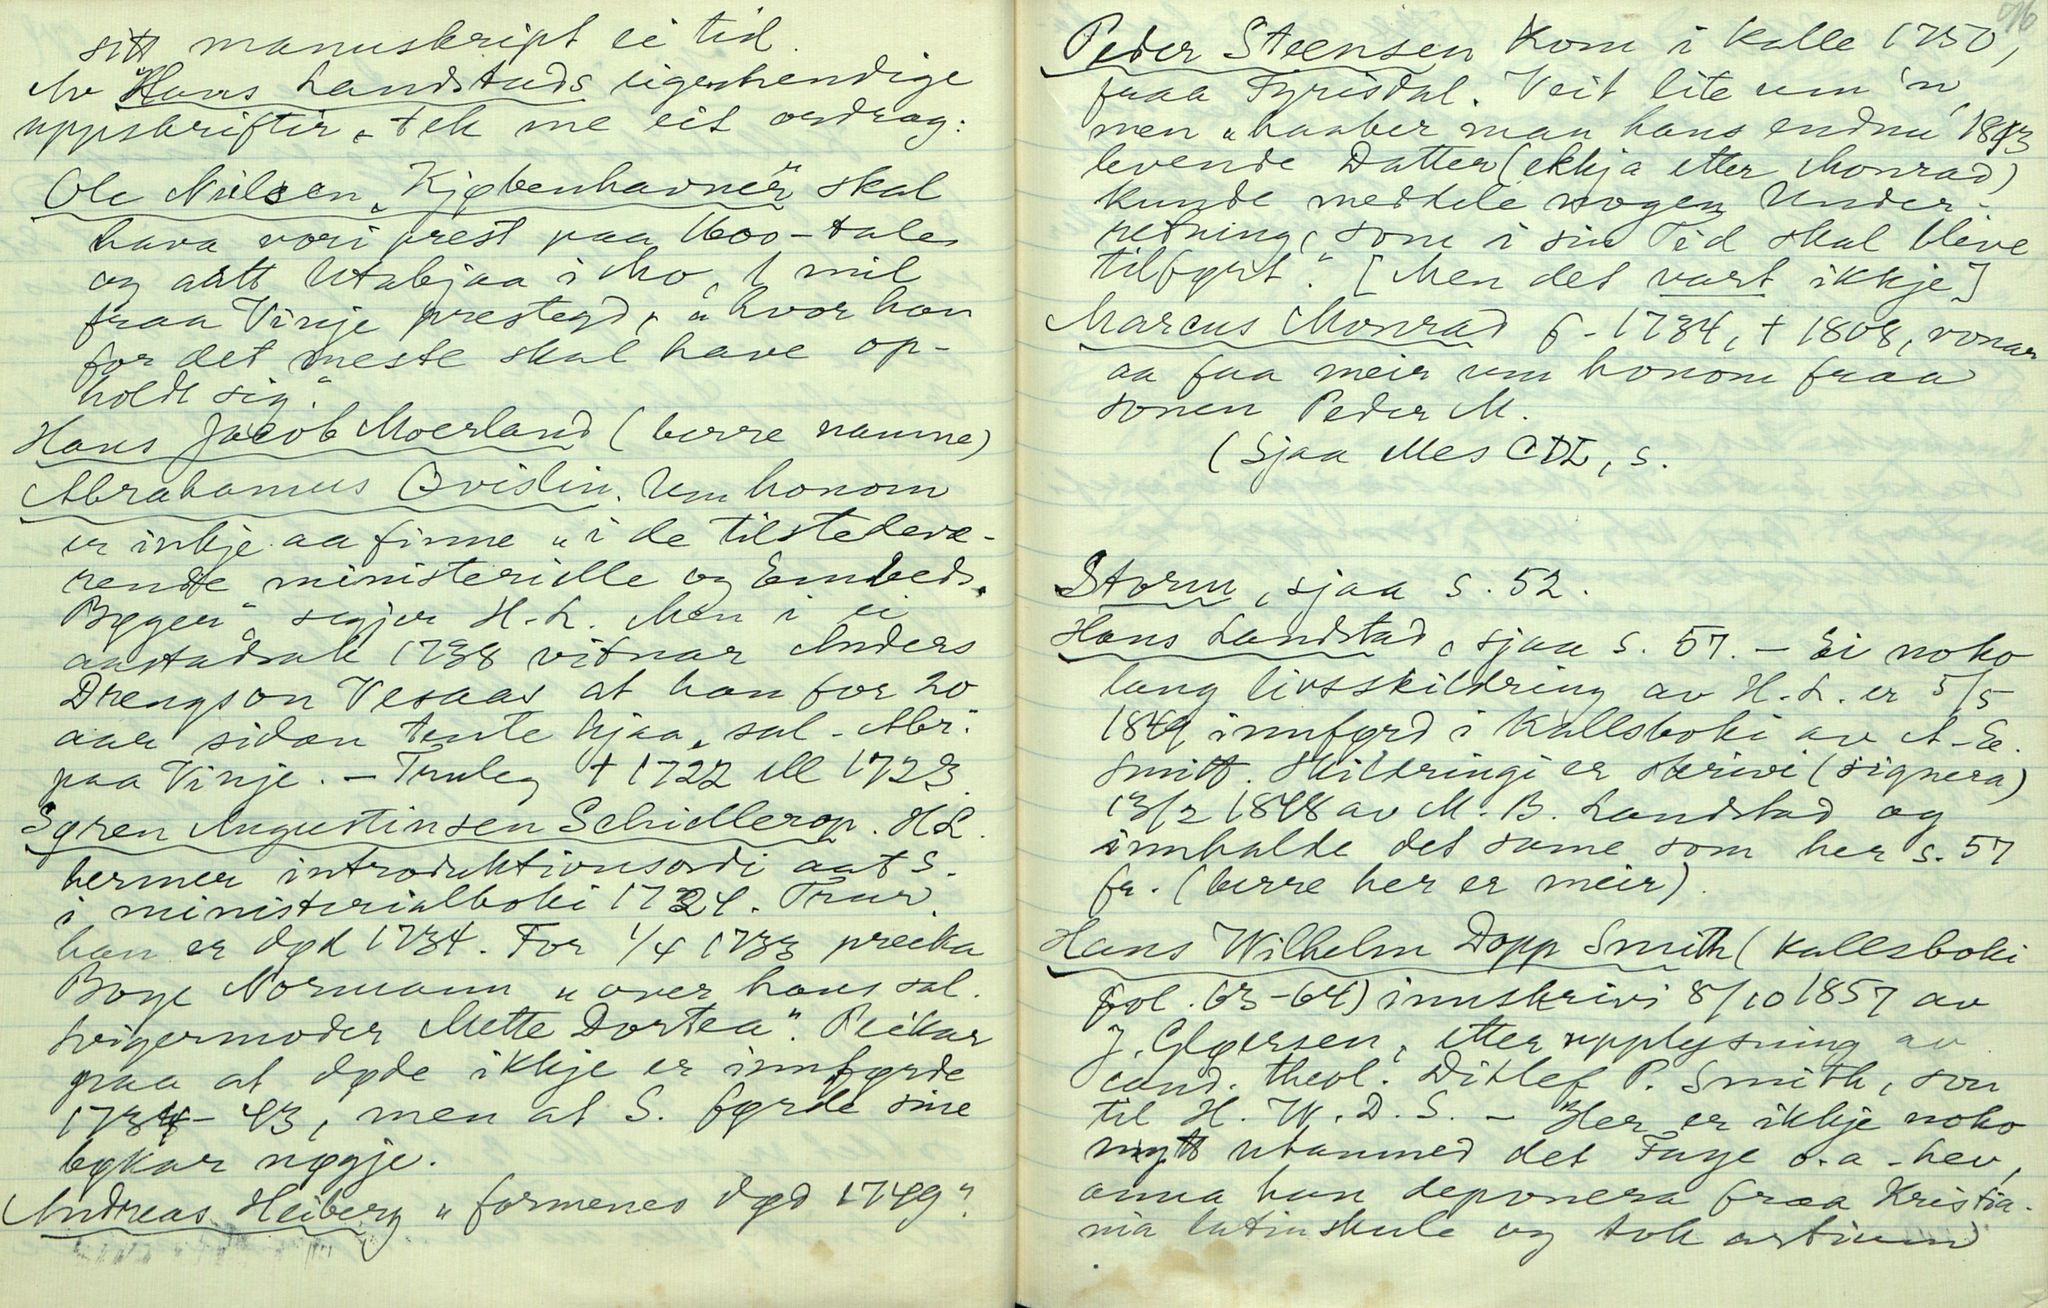 sitt manuskript ei tid.
Av Hans Landstads eigenhendige
uppskriftir, tek me eit ordrag:
Ole Nielsen „Kjøbenhavner" skal
hava vori prest paa 1600-tale
og aatt Utabjaa i Mo, 1 mil
fraa Vinje prestegd, „hvor han
for det meste skal have op-
holdt sig."
Hans Jacob Moerland (berre namne)
Abrahamus Qvislin. Um honom
er inkje aa finne „i de tilstedevæ-
rende ministerielle og Embeds-
Bøger" segjer H.L. Men i ei
aastadsak 1738 vitnar Anders
Drengson Vesaas at han for 20
aar sidan tente hjaa „sal. Abr."
paa Vinje. – Truleg † 1722 ell 1723.
Søren Augustinsen Schiellerop. H.L.
hermer introduktionsordi aat S.
i ministerialboki 1724. Trur
han er død 1734. For 1/4 1733 preika
Boye Normann „over hans sal.
Svigermoder Mette Dortea". Peikar
paa at døde ikkje er innførde
1734-43, men at S. førde sine
bøkar nøgje.
Andreas Heiberg „formenes død 1749".
96
Peder Steensen kom i kalle 1750,
fraa Fyrisdal. Veit lite um 'n,
men „haaber man hans endnu 1813
levende Datter (ekkja etter Monrad)
kunde meddele nogen Under-
retning, som i sin Tid skal blive
tilført". [Men det vart ikkje]
Marcus Monrad f. 1734, † 1808, vonar
aa faa meir um honom fraa
sonen Peder M.
(Sjaa Mes CDI, s.
Storm, sjaa s. 52.
Hans Landstad, sjaa s. 57. – Ei noko
lang livsskildring av H.L. er 5/5
1849 innførd i Kallsboki av A. E.
Smith. Skildringi er skrivi (signera)
13/2 1848 av M. B. Landstad og
innhalde det same som her s. 57
fr. (berre her er meir).
Hans Wilhelm Dopp Smith (Kallsboki
fol. 63-64) innskrivi 8/10 1857 av
J. Gløersen, etter upplysning av
cand. theol. Ditlef P. Smith, son
til H. W. D. S. – Her er ikkje noko
nytt utanmed det Faye o.a. hev,
anna han deponera fraa Kristia-
nia latinskule og tok artium